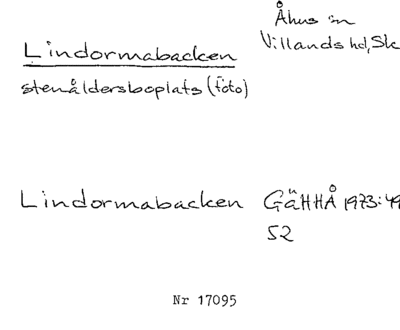 Åhus sn
Lindormabacken
Villands hd, Sk
stenåldersboplats (foto)
Lindormabacken GäHHÅ 1973:49
52
Nr 17095